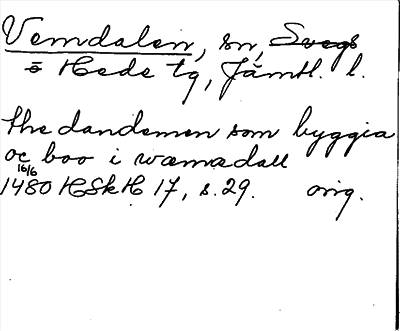 Vemdalen, sn, Svegs
ö Hede tg, Jämtl. l.
the dandemen som byggia
oc boo i wæmædall
16/6
1480 HSkH 17, s. 29. orig.